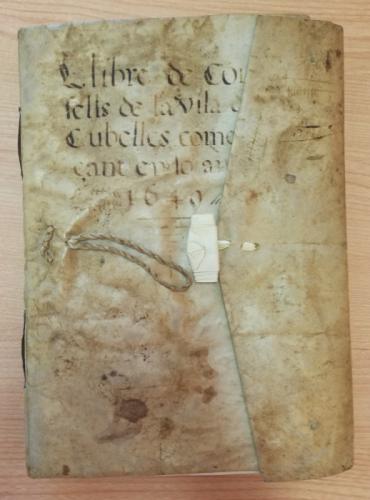 Llibre de Con
sells de la Vila d
Cubelles come
çant en lo an
1640